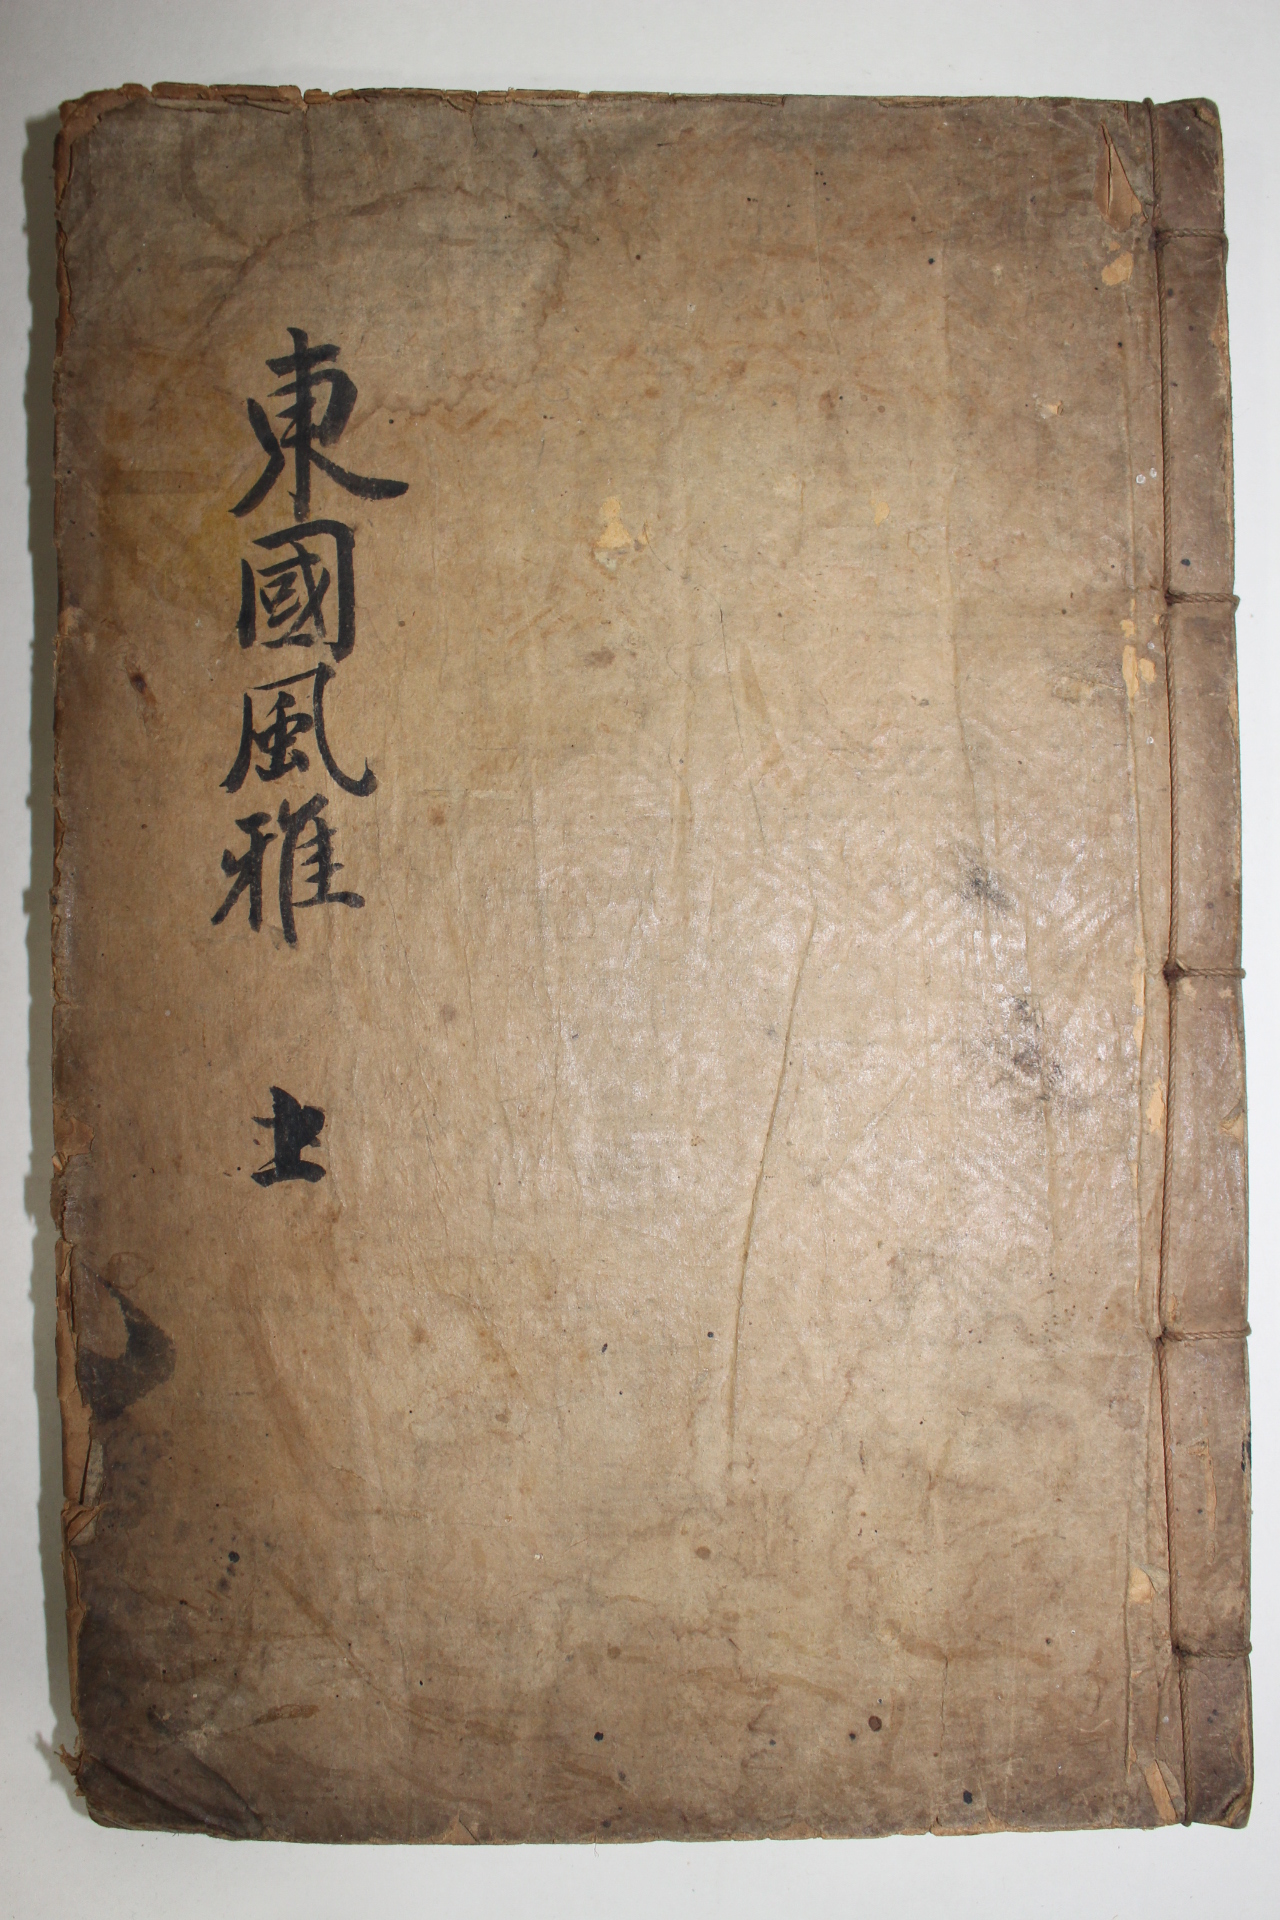 東國風雅 上